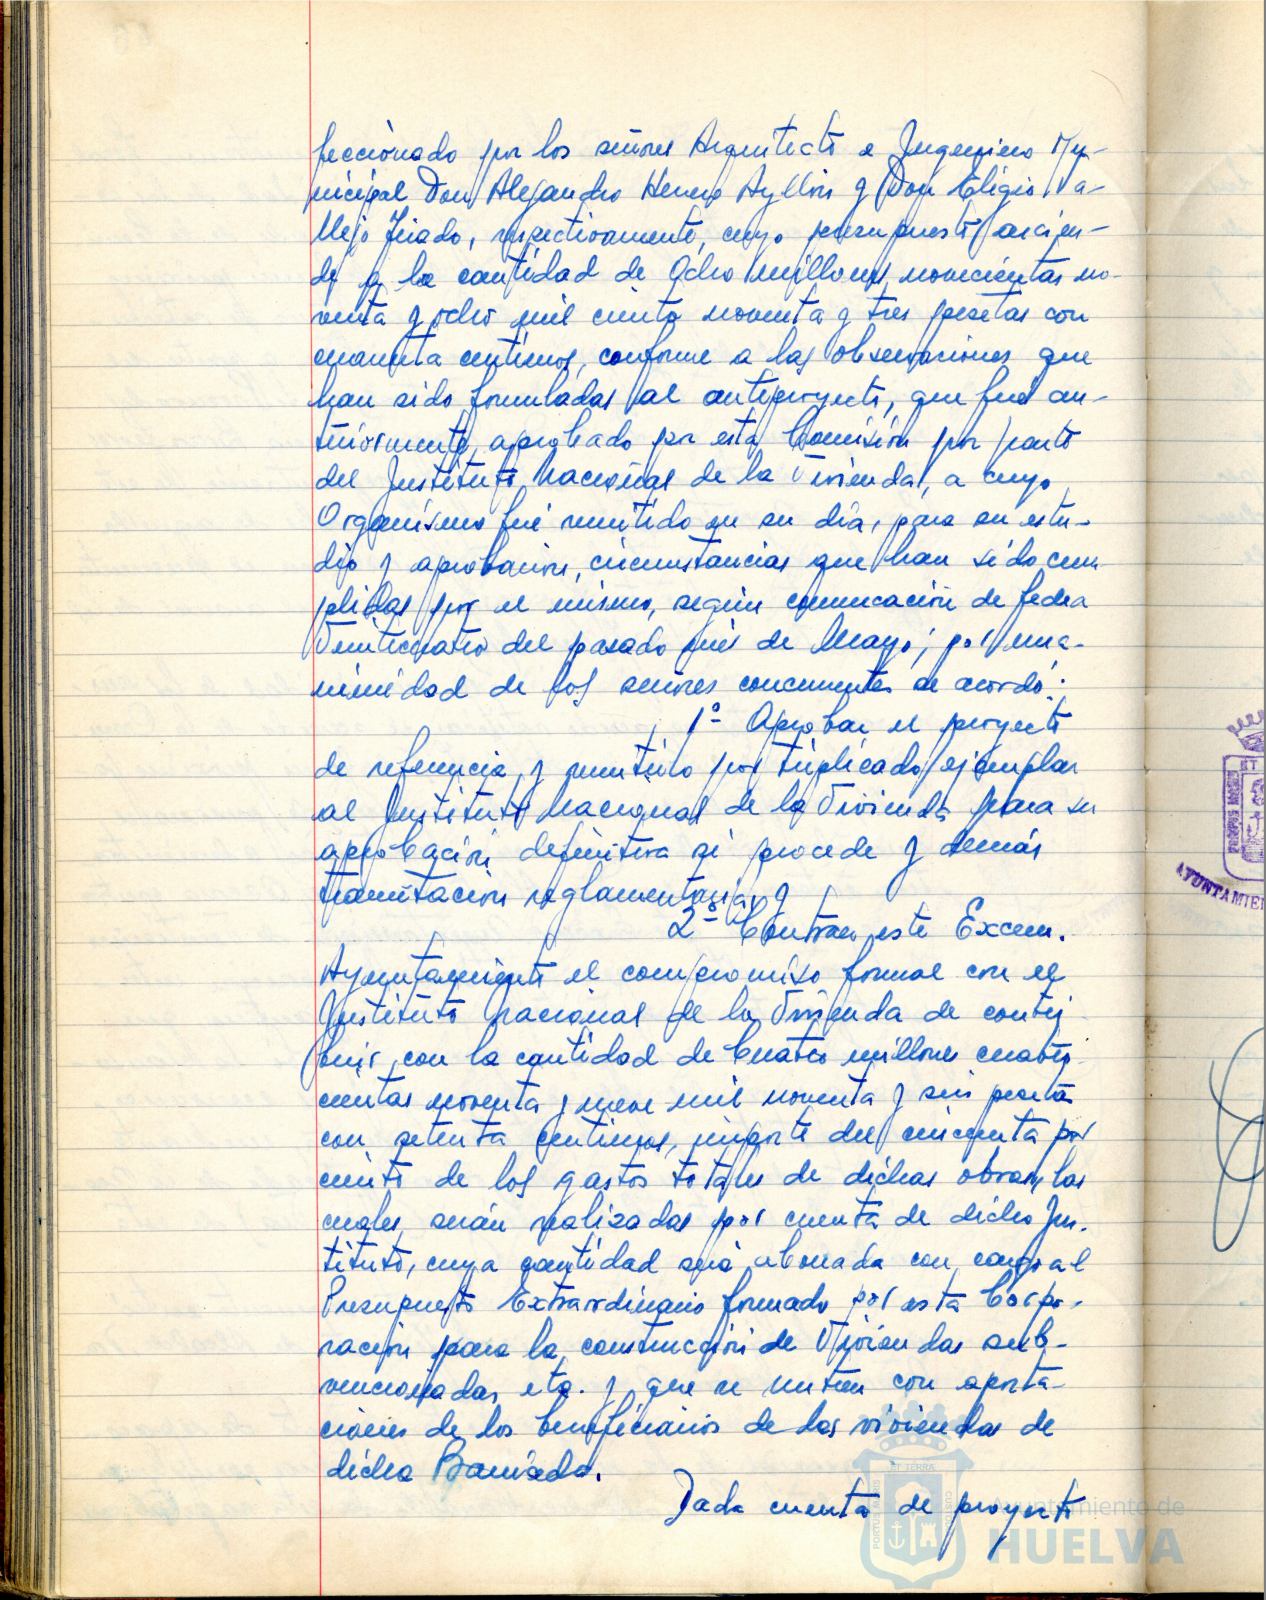 feccionado por los señores Arquitecto e Ingeniero Mu-
nicipal Don Alejandro Herrero Ayllón y Don Eligio Va-
llejo Tirado, respectivamente, cuyo presupuesto ascien-
de a la cantidad de Ocho millones novecientas no-
venta y ocho mil ciento noventa y tres pesetas con
cuarenta centimos, conforme a las observaciones que
han sido formuladas al anteproyecto, que fué an-
teriormente aprobado por esta Comisión por parte
del Instituto Nacional de la Vivienda, a cuyo
Organismo fué remitido en su dia, para su estu-
dio y aprobación, circunstancias que han sido cum
plidas por el mismo, según comunicación de fecha
Veinticuatro del pasado mes de Mayo; por una-
nimidad de los señores concurrentes se acordó:
1º Aprobar el proyecto
de referencia y remitirlo por triplicado ejemplar
al Instituto Nacional de la Vivienda para su
aprobación definitiva si procede y demás
tramitación reglamentaria, y
2º Contraer este Excem.
Ayuntamiento el compromiso formal con el
Instituto Nacional de la Vivienda de contri
buir con la cantidad de Cuatro millones cuatro
cientas noventa y nueve mil noventa y seis pesetas
con setenta centimos, importe del cincuenta por
ciento de los gastos totales de dichas obras, las
cuales serán realizadas por cuenta de dicho Ins-
tituto, cuya cantidad será abonada con cargo al
Presupuesto Extraordinario formado por esta Corpo-
ración para la construcción de Viviendas sub-
vencionadas, etc. y que se nutren con aporta-
ciones de los beneficiarios de las viviendas de
dicha Barriada.
Dada cuenta de proyecto
AYUNTAMIE
Ayuntamiento de
HUELVA